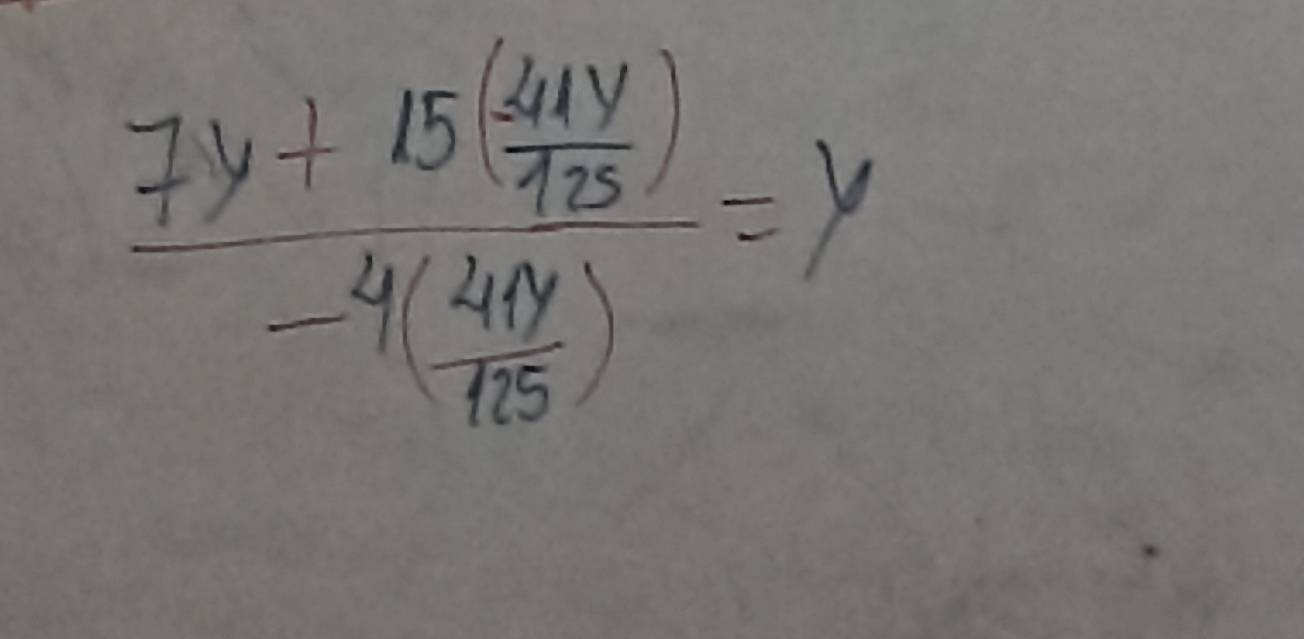 7y + 15(-41y/125)
= y
-4(41y/125)